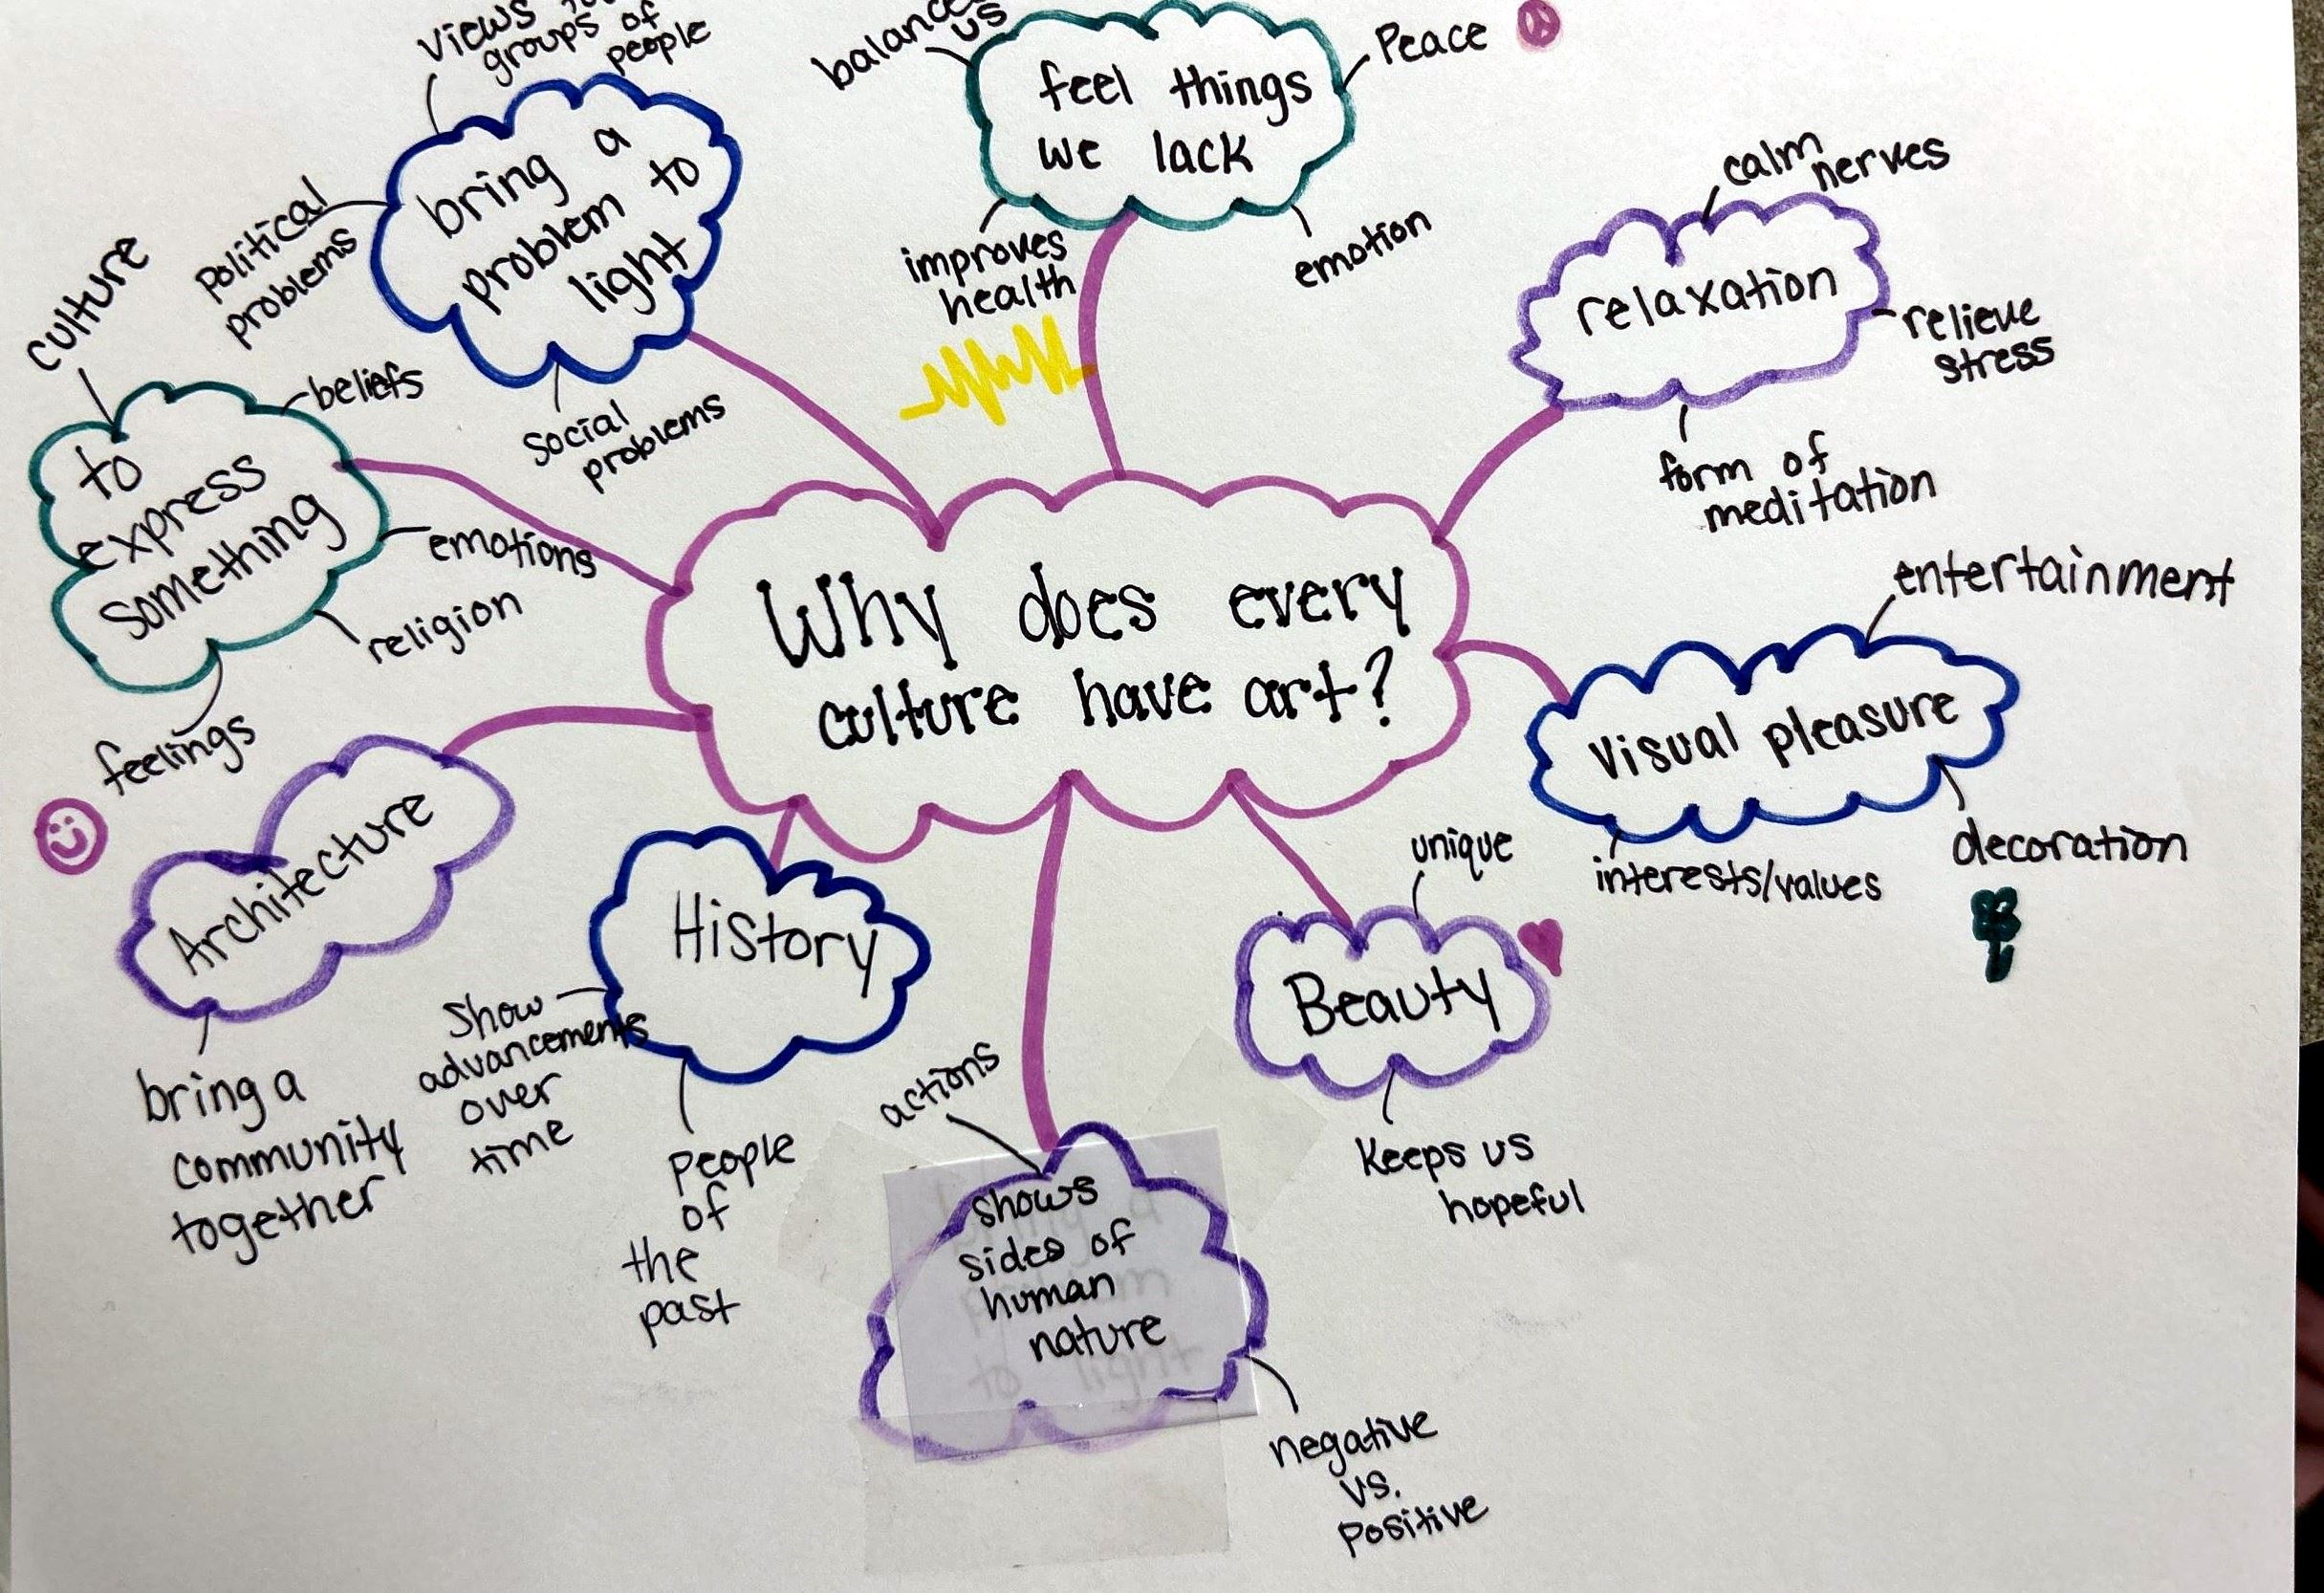 views
groups of
people
bring a
problem to
light
Political
problems
social
problems
balances
us
feel things
we lack
Peace
improves
health
emotion
calm
nerves
relaxation
relieve
stress
form of
meditation
culture
beliefs
to
express
something
emotions
religion
feelings
Why does every
culture have art?
entertainment
visual pleasure
interests/values
decoration
Architecture
bring a
community
together
History
Show
advancements
over
time
People
of
the
past
unique
Beauty
Keeps us
hopeful
actions
shows
sides of
human
nature
negative
vs.
Positive